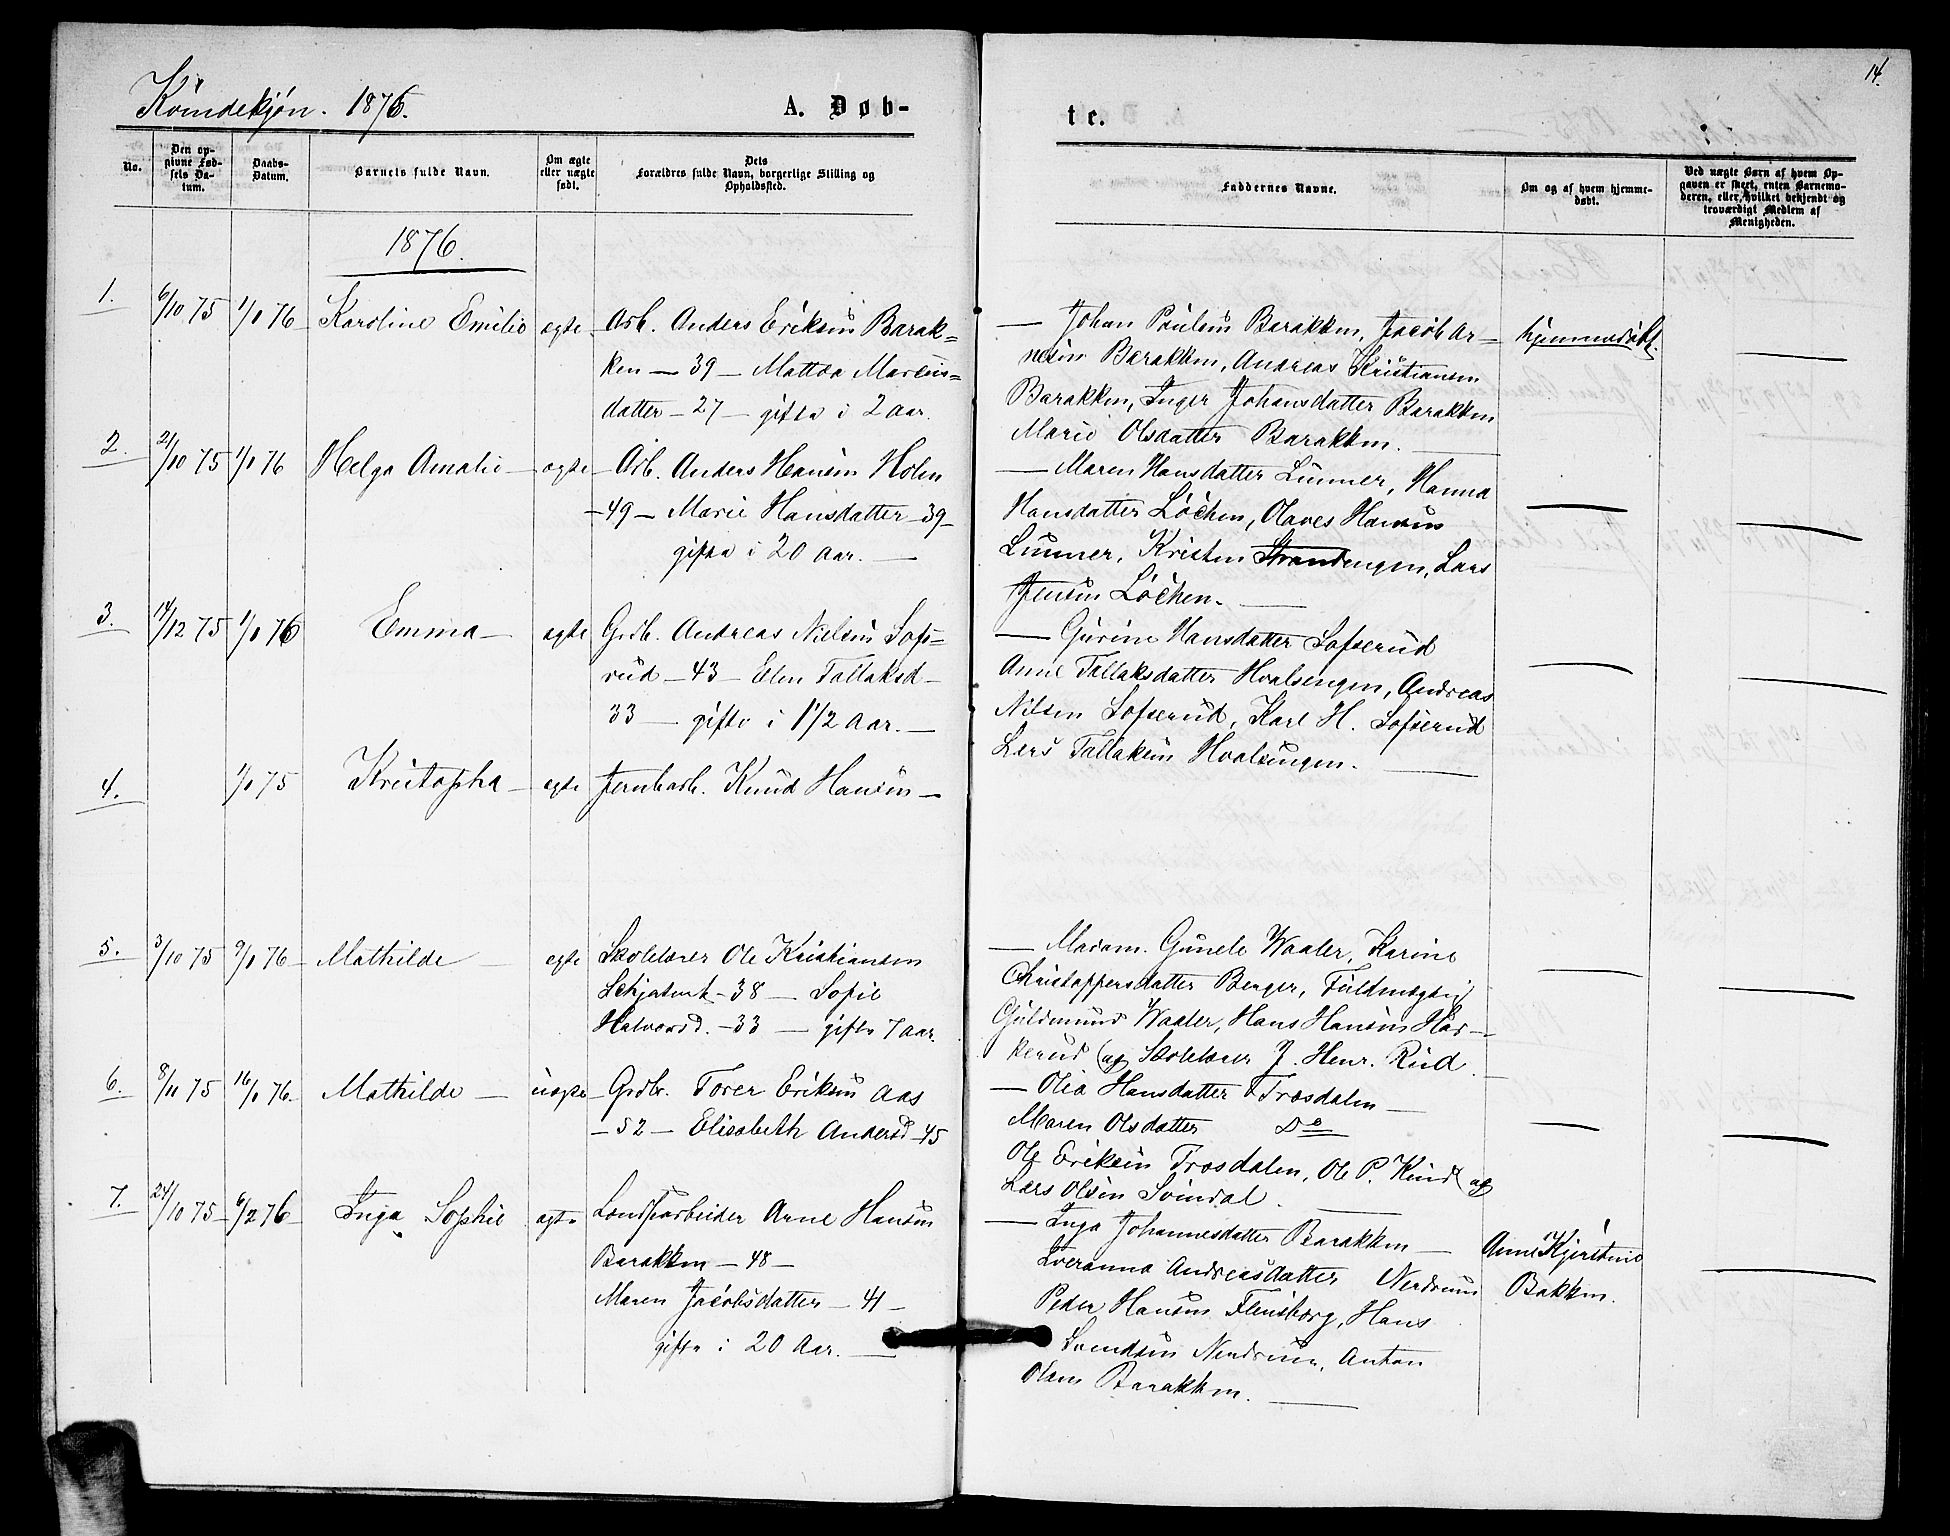 14.
Kvindekjøn. 1876.
A. Døb-
te.
No.
Den op-
givne Fød-
sels Da-
tum.
Daabs-
Datum.
Barnets fulde Navn.
Om ægte
eller uægte
født.
Dets
Forældres fulde Navn, borgerlige Stilling og
Opholdssted.
Faddernes Navne.
Om og af hvem hjemme-
døbt.
Ved uægte Børn af hvem Op-
gaven er skeet, enten Barnemo-
deren, eller hvilket bekjendt og
troværdigt Medlem af
Menigheden.
1876.
1. 6/10 75 1/1 76 Karoline Emilie ægte
Arb. Anders Eriksen Barak-
ken — 39 — Mathea Marcus-
datter — 27 — gifte i 2 Aar.
— Johan Paulsen Barakken, Jacob Ar-
nesen Barakken, Andreas Kristiansen
Barakken, Inger Johansdatter Barakken
Marie Olsdatter Barakken.
hjemmedøbt.
2. 21/10 75 1/1 76 Helga Amalie — ægte
Arb. Anders Hansen Holm
— 49 — Marie Hansdatter — 39 —
gifte i 20 Aar. —
— Maren Hansdatter Linner, Hanna
Hansdatter Løchen, Olaves Hansen
Linner, Kristen Strandengen, Lars
Jensen Løchen. —
3. 14/12 75 1/1 76 Emma — ægte
Grdb. Andreas Nielsen Sofs-
rud — 43 — Elen Tallaksd —
33 — gifte i 1 1/2 Aar. —
— Gurine Hansdatter Sofserud
Anne Tallaksdatter Hvalsengen, Andreas
Nilsen Sofserud, Karl H. Sofserud
Lars Tallaksen Hvalsengen. —
4. 1/1 75 Kristopha — ægte
Jernbarb. Knud Hansen —
5. 3/10 75 9/1 76 Mathilde — ægte
Skolelærer Ole Kristiansen
— 38 — Sofie
Halvorsd. — 33 — gifte 7 Aar.
— Madam. Gunele Waaler, Karine
Christoffersdatter Berger, Fuldmægtig
Guldmund Waaler, Hans Hansen Har-
kerud og Skolelærer J. Henr. Rud.
6. 8/11 75 16/1 76. Mathilde — uægte
Grdbr. Torer Eriksen Aas
— 52 — Elisabeth Andersd — 45
— Olia Hansdatter Trosdalen —
Maren Olsdatter Do
Ole Eriksen Trosdalen, Ole P. Kind og
Lars Olsen Svindal. —
7. 24/10 75 6/2 76 Inga Sophie ægte
Landharbeider Arne Hansen
Barakken — 48 —
Maren Jacobsdatter — 41 —
gifte i 20 Aar. —
— Inga Johannesdatter Barakken —
Lveranna Andreasdatter Nerdrum
Peder Hansen Flensborg, Hans
Svendsen Nerdrum, Anton
Olsen Barakken. —
Anne Kjerstine
Bakken.